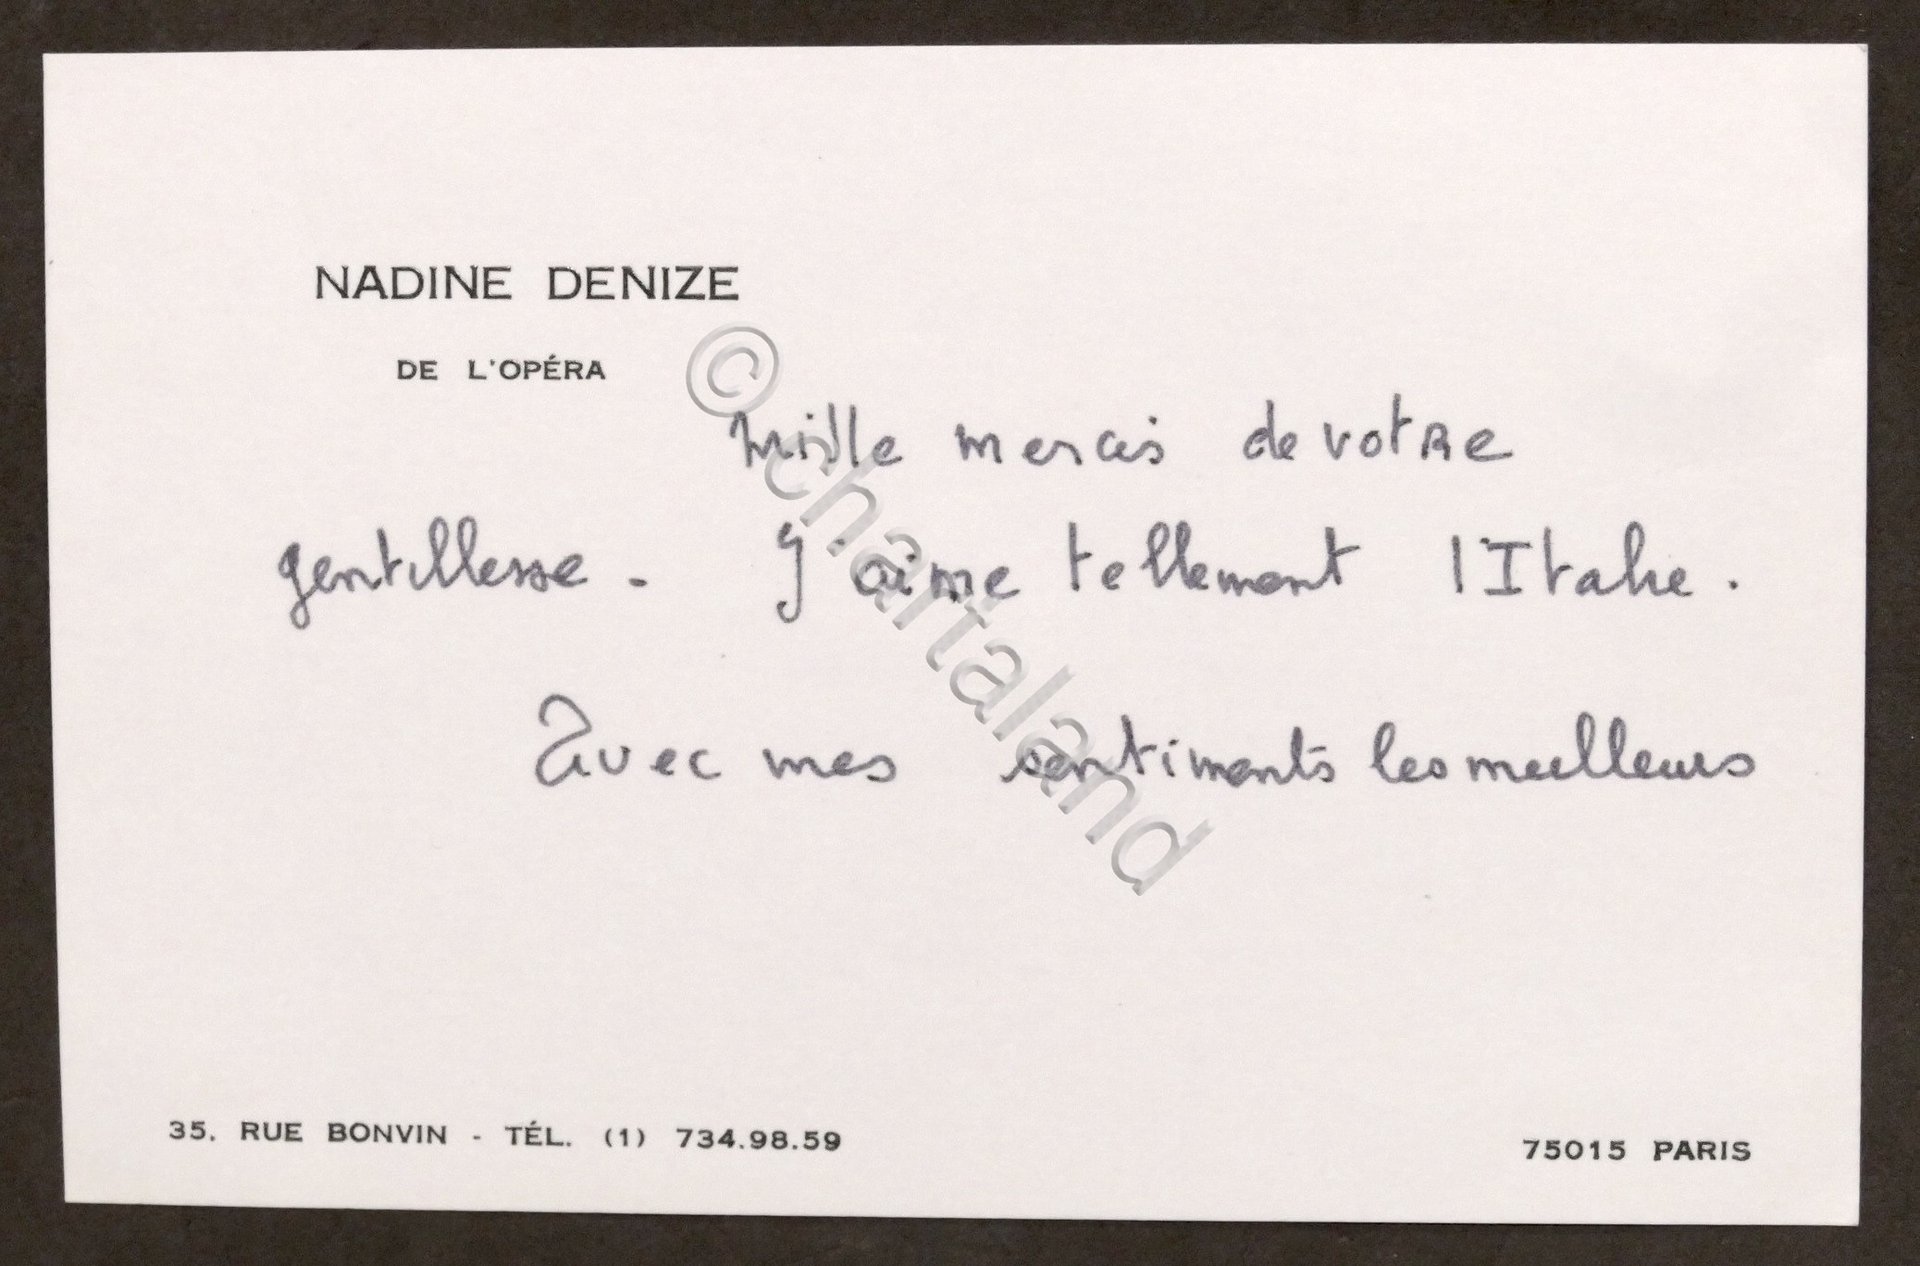 NADINE DENIZE
DE L'OPÉRA
Mille mercis de votre
gentillesse. J'aime tellement l'Italie.
Avec mes sentiments les meilleurs
35, RUE BONVIN - TÉL. (1) 734.98.59
75015 PARIS
© chartaland